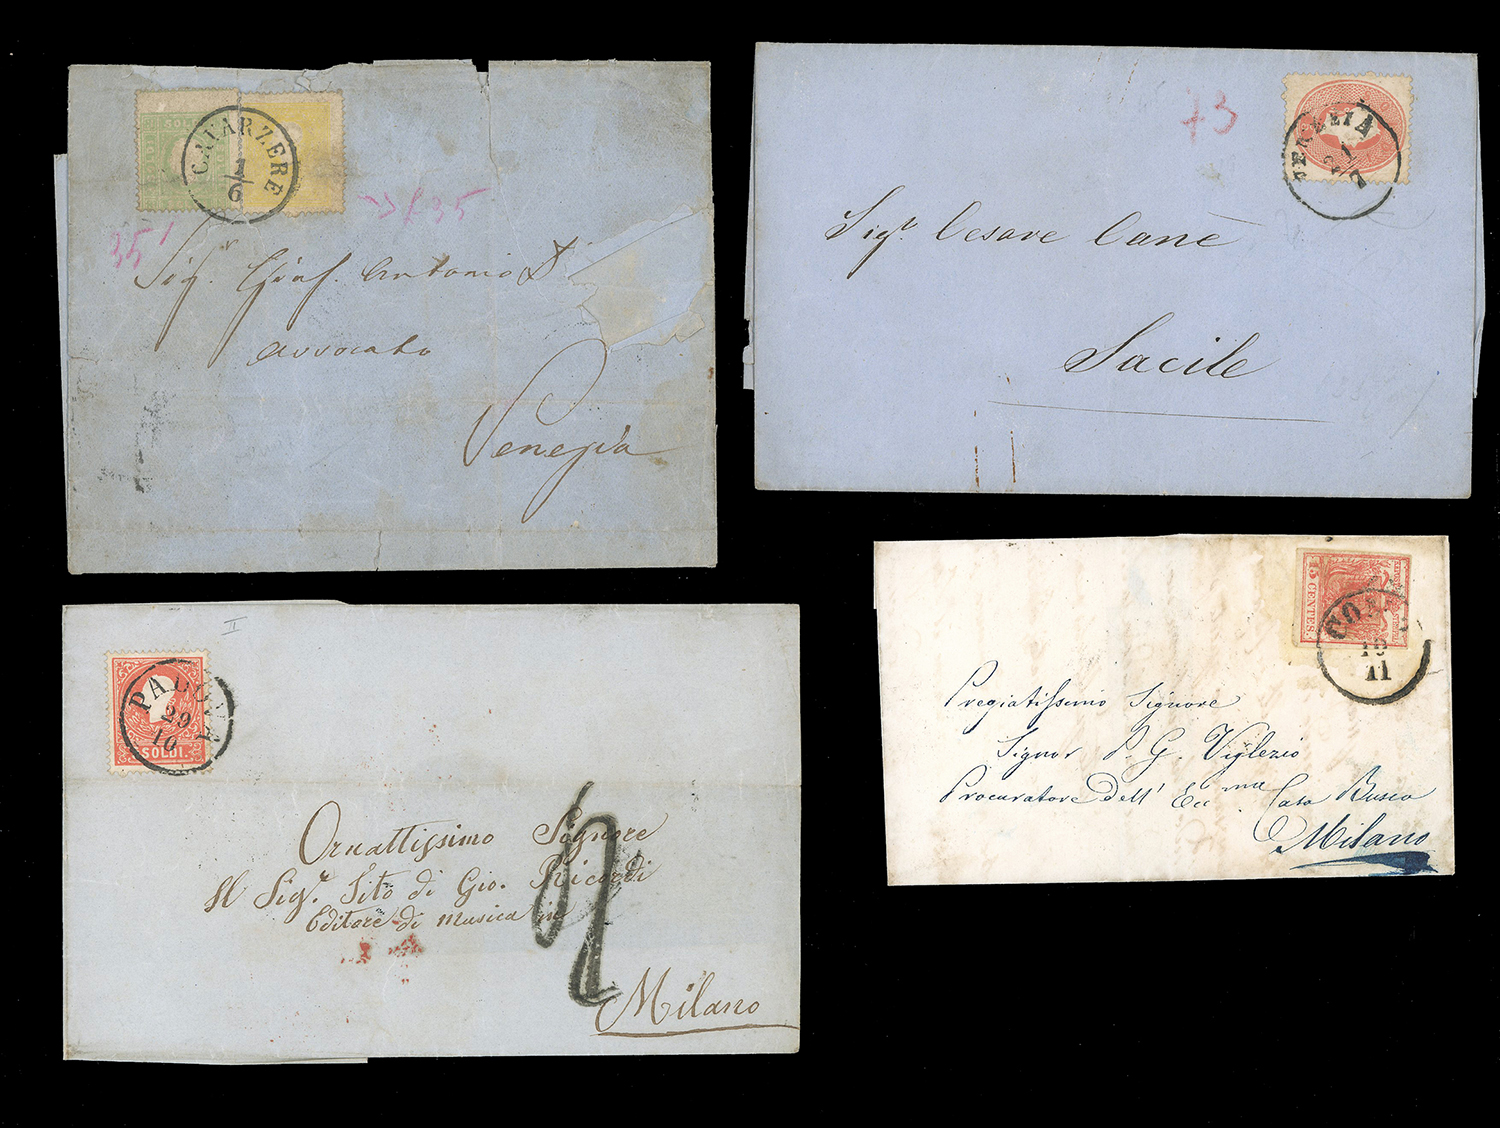 SOLDI
CAVARZERE
1
6
35
35
Sigr.
Antonio
avvocato
Venezia
73
VENEZIA
Sigr. Cesare Canè
Sacile
II
PADOVA
29
10
SOLDI.
Ornattissimo Signore
Il Sigr. Tito di Gio. Ricordi
Editore di Musica in
Milano
15 CENTES.
COMO
19
11
Pregiatissimo Signore
Signor P. G. Viglezio
Procuratore dell' Eccma Casa Busca
Milano